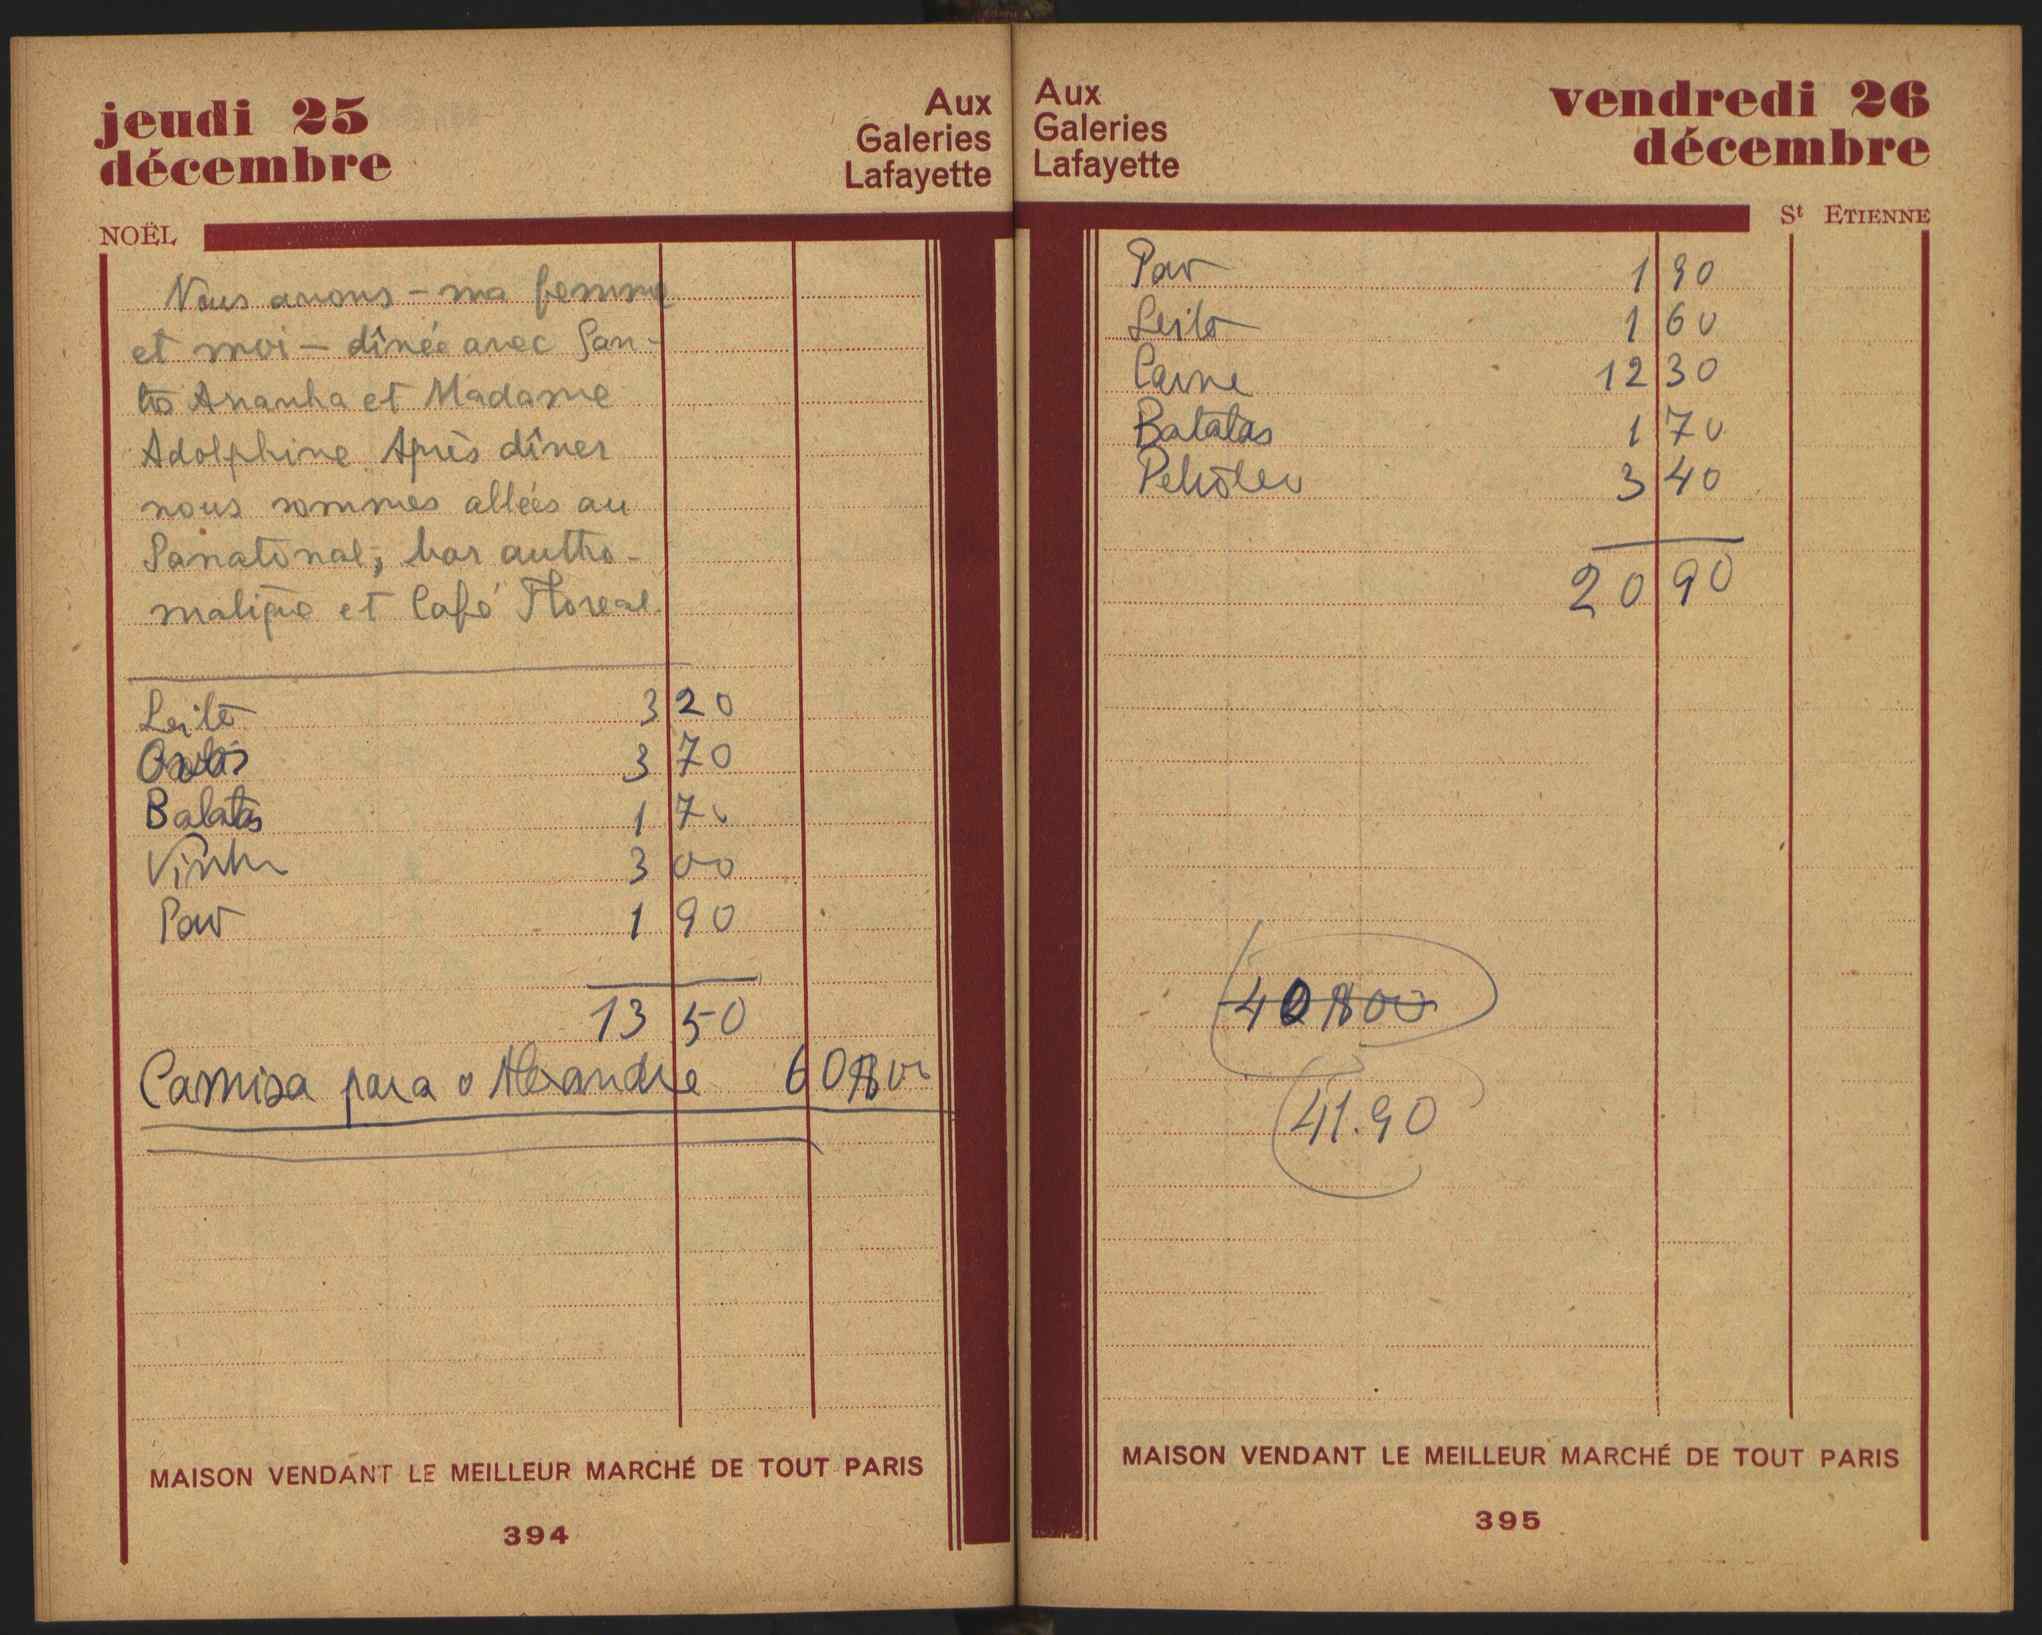 jeudi 25
décembre
Aux
Galeries
Lafayette
NOËL
Nous avons - ma femme
et moi - dînée avec San-
tos Aranha et Madame
Adolphine. Après dîner
nous sommes allées au
bar autto-
matique et Café Floreal
Leite 3 20
3 70
Batatas 1 70
Vinho 3 00
Pao 1 90
13 50
Camisa para o Alexandre 60$00
MAISON VENDANT LE MEILLEUR MARCHÉ DE TOUT PARIS
394
Aux
Galeries
Lafayette
vendredi 26
décembre
St ETIENNE
Pao 1 90
Leite 1 60
Carne 12 30
Batatas 1 70
3 40
20 90
40$00
41.90
MAISON VENDANT LE MEILLEUR MARCHÉ DE TOUT PARIS
395